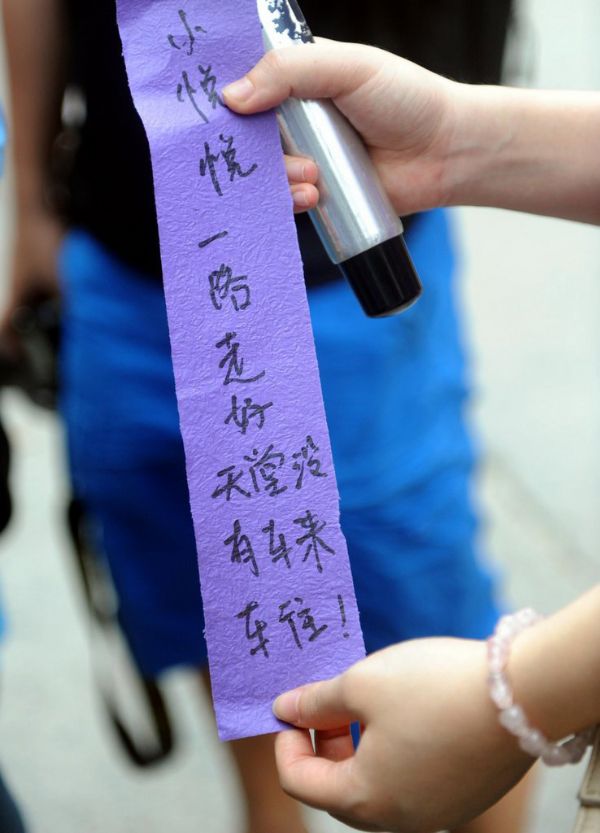 小悦悦
一路走好
天堂没
有车来
车往！